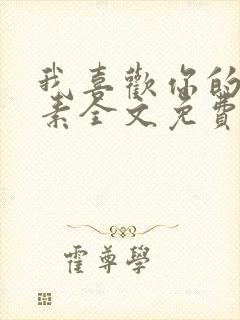 我喜歡你的
素全文免費
霍尊學